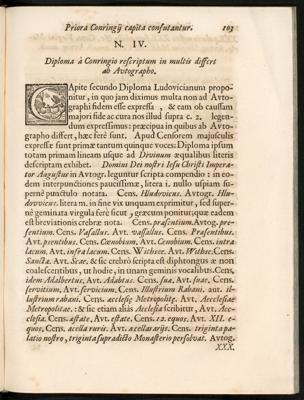 Priora Conringij capita confutantur. 103
N. IV.
Diploma à Conringio rescriptum in multis differt
ab Avtographo.
CApite secundo Diploma Ludovicianum propo-
nitur, in quo jam diximus multa non ad Avto-
graphi fidem esse expressa, & eam ob caussam
majori fide ac cura nos illud supra c. 2. legen-
dum expressimus: præcipua in quibus ab Avto-
grapho differt, hæc ferè sunt. Apud Censorem majusculis
expressæ sunt primæ tantum quinque voces: Diploma ipsum
totam primam lineam usque ad Divinum æqualibus literis
descriptam exhibet. Domini Dei nostri Iesu Christi Impera-
tor Augustus in Avtogr. leguntur scripta compendio: in eo-
dem interpunctiones paucissimæ, litera i. nullo uspiam su-
pernè punctulo notata. Cens. Hludrovicus. Avtogr. Illu-
drovvicus. litera m. in fine vix unquam exprimitur, sed super-
nè geminata virgula ferè sicut , græcum ponitur; quæ eadem
est breviationis crebræ nota. Cens. præsentium. Avtog. præ-
sentium. Cens. Vasallus. Avt. vasallus. Cens. Præsentibus.
Avt. prentibus. Cens. Cœnobium, Avt. Cenobium. Cens. intra
lacum. Avt, infra lacum. Cens. Withree. Avt. Wethee. Cens.
Sanctæ. Avt. Scæ. & sic crebrò scripta est diphtongus æ non
coalescentibus, ut hodie, in unam geminis vocalibus. Cens.
idem Adalbertus, Avt. Adabtus. Cens. sua, Avt. suae, Cens.
servitium, Avt. servicium, Cens. Illustrium Rabani. aut. il-
lustrium rabani. Cens. acclesiæ Metropolitę. Avt. Aecclesiae
Metropolitae. : & sic etiam alias Aecclesia scribitur, Avt. Aec-
clesia. Cens. æstate, Avt. estate, Cens. 12. equos, Avt. XII. e-
quos, Cens. acella ruris. Avt. acellararijs. Cens. triginta pa-
latio nostro, triginta supradicto Monasterio persolvat. Avtog.
XXX.